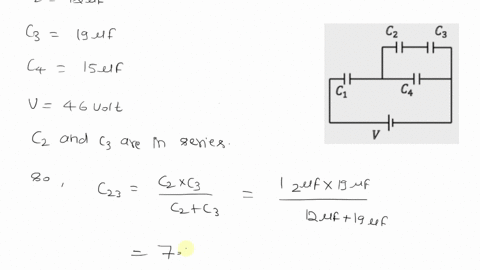 C₃ = 19 µf
C₄ = 15 µf
V = 46 volt
C₂ and C₃ are in series.
so, C₂₃ = C₂ × C₃ / C₂ + C₃ = 12 µf × 19 µf / 12 µf + 19 µf
= 7.
C₂ C₃
C₁ C₄
V